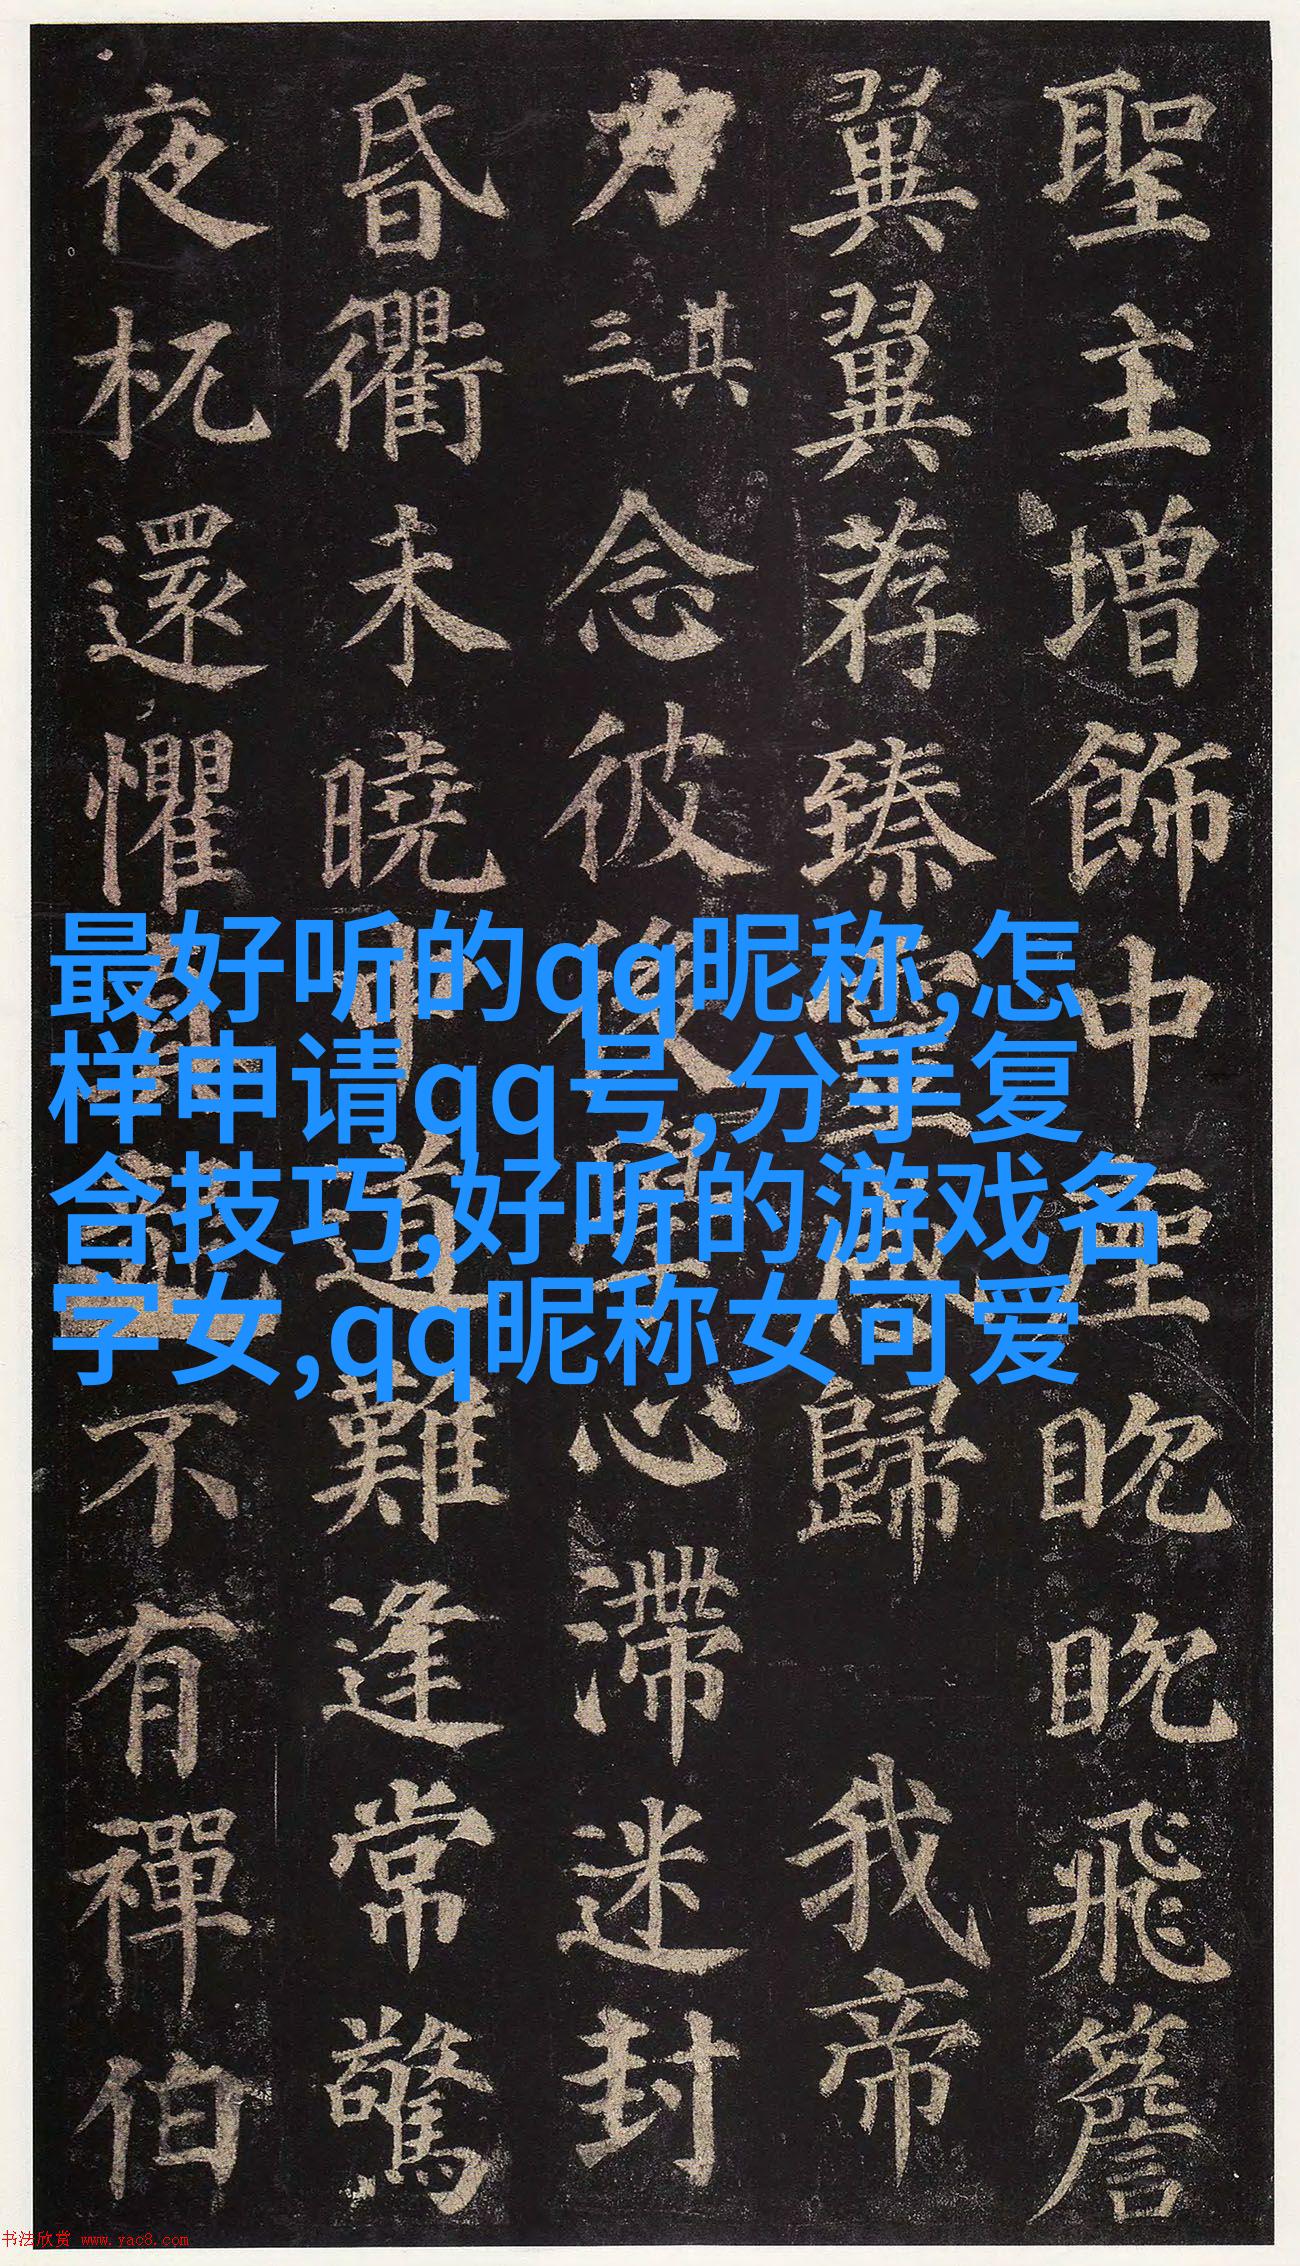 聖主增飾中眈眈飛簷
翼翼荐臻歸我帝
力其三念彼後心滯迷封
昏衢未曉道難逢常驚
夜杌還懼不有禪伯
最好听的qq昵称,怎
样申请qq号,分手复
合技巧,好听的游戏名
字女,qq昵称女可爱
书法欣赏 www.yac8.com